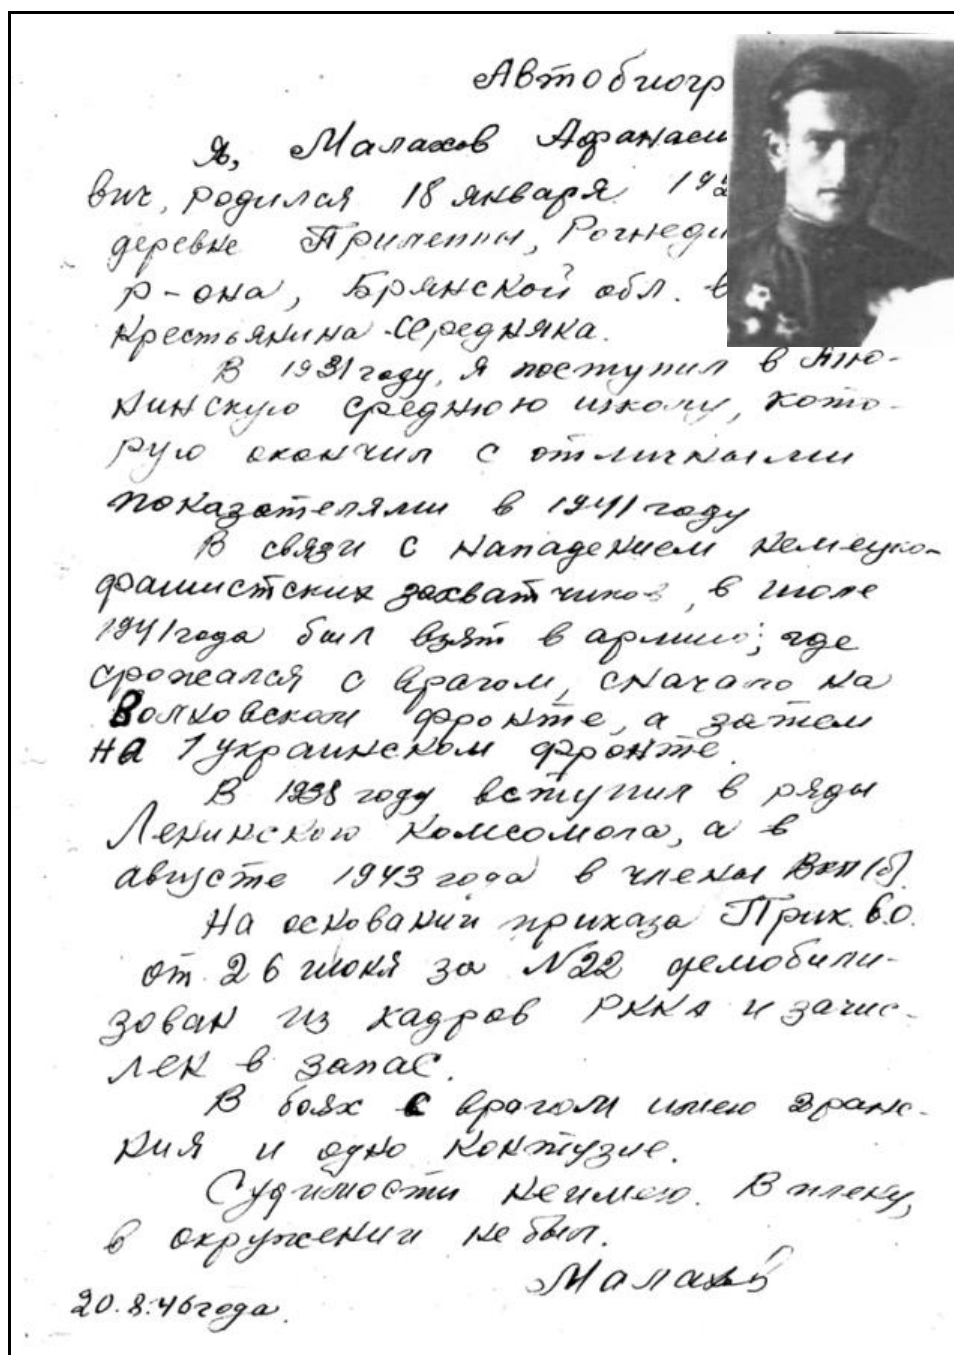 Автобиогр
Я, Малахов Афанаси
вич, родился 18 января 192
деревне Прилепы, Рогнеди
р-она, Брянской обл. в
крестьянина-середняка.
В 1931 году, я поступил в Тюю-
нинскую среднюю школу, кото-
рую окончил с отличными
показателями в 1941 году
В связи с нападением немецко-
фашистских захватчиков, в июле
1941 года был взят в армию; где
срожался с врагом, сначало на
Волховском фронте, а затем
на 1 украинском фронте.
В 1938 году вступил в ряды
Ленинского комсомола, а в
августе 1943 года в члены ВКП(б).
На основании приказа Прик.В.О.
от 26 июня за №22 демобили-
зован из кадров РККА и зачис-
лен в запас.
В боях с врагом имею 2 ране-
ния и одно контузие.
Судимости неимею. В плену,
в окружении не был.
Малахов
20.8.46 года.